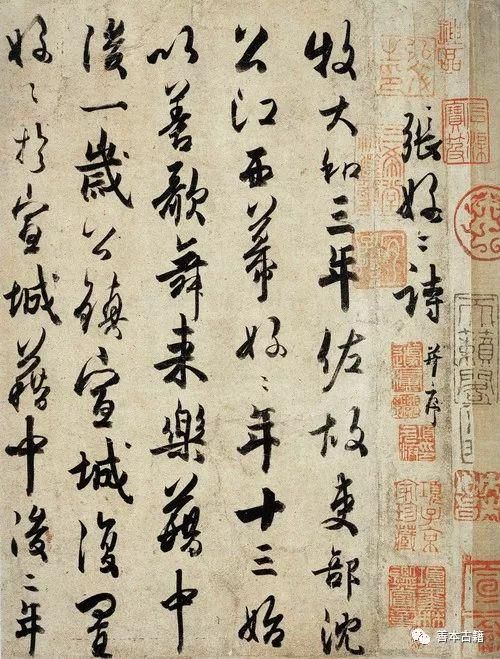 張好〻詩并序
牧大和三年佐故吏部沈
公江西幕好〻年十三始
以善歌舞来樂籍中
後一歲公鎮宣城復置
好〻於宣城籍中後二年
神品
項子京
家珍藏
善本古籍